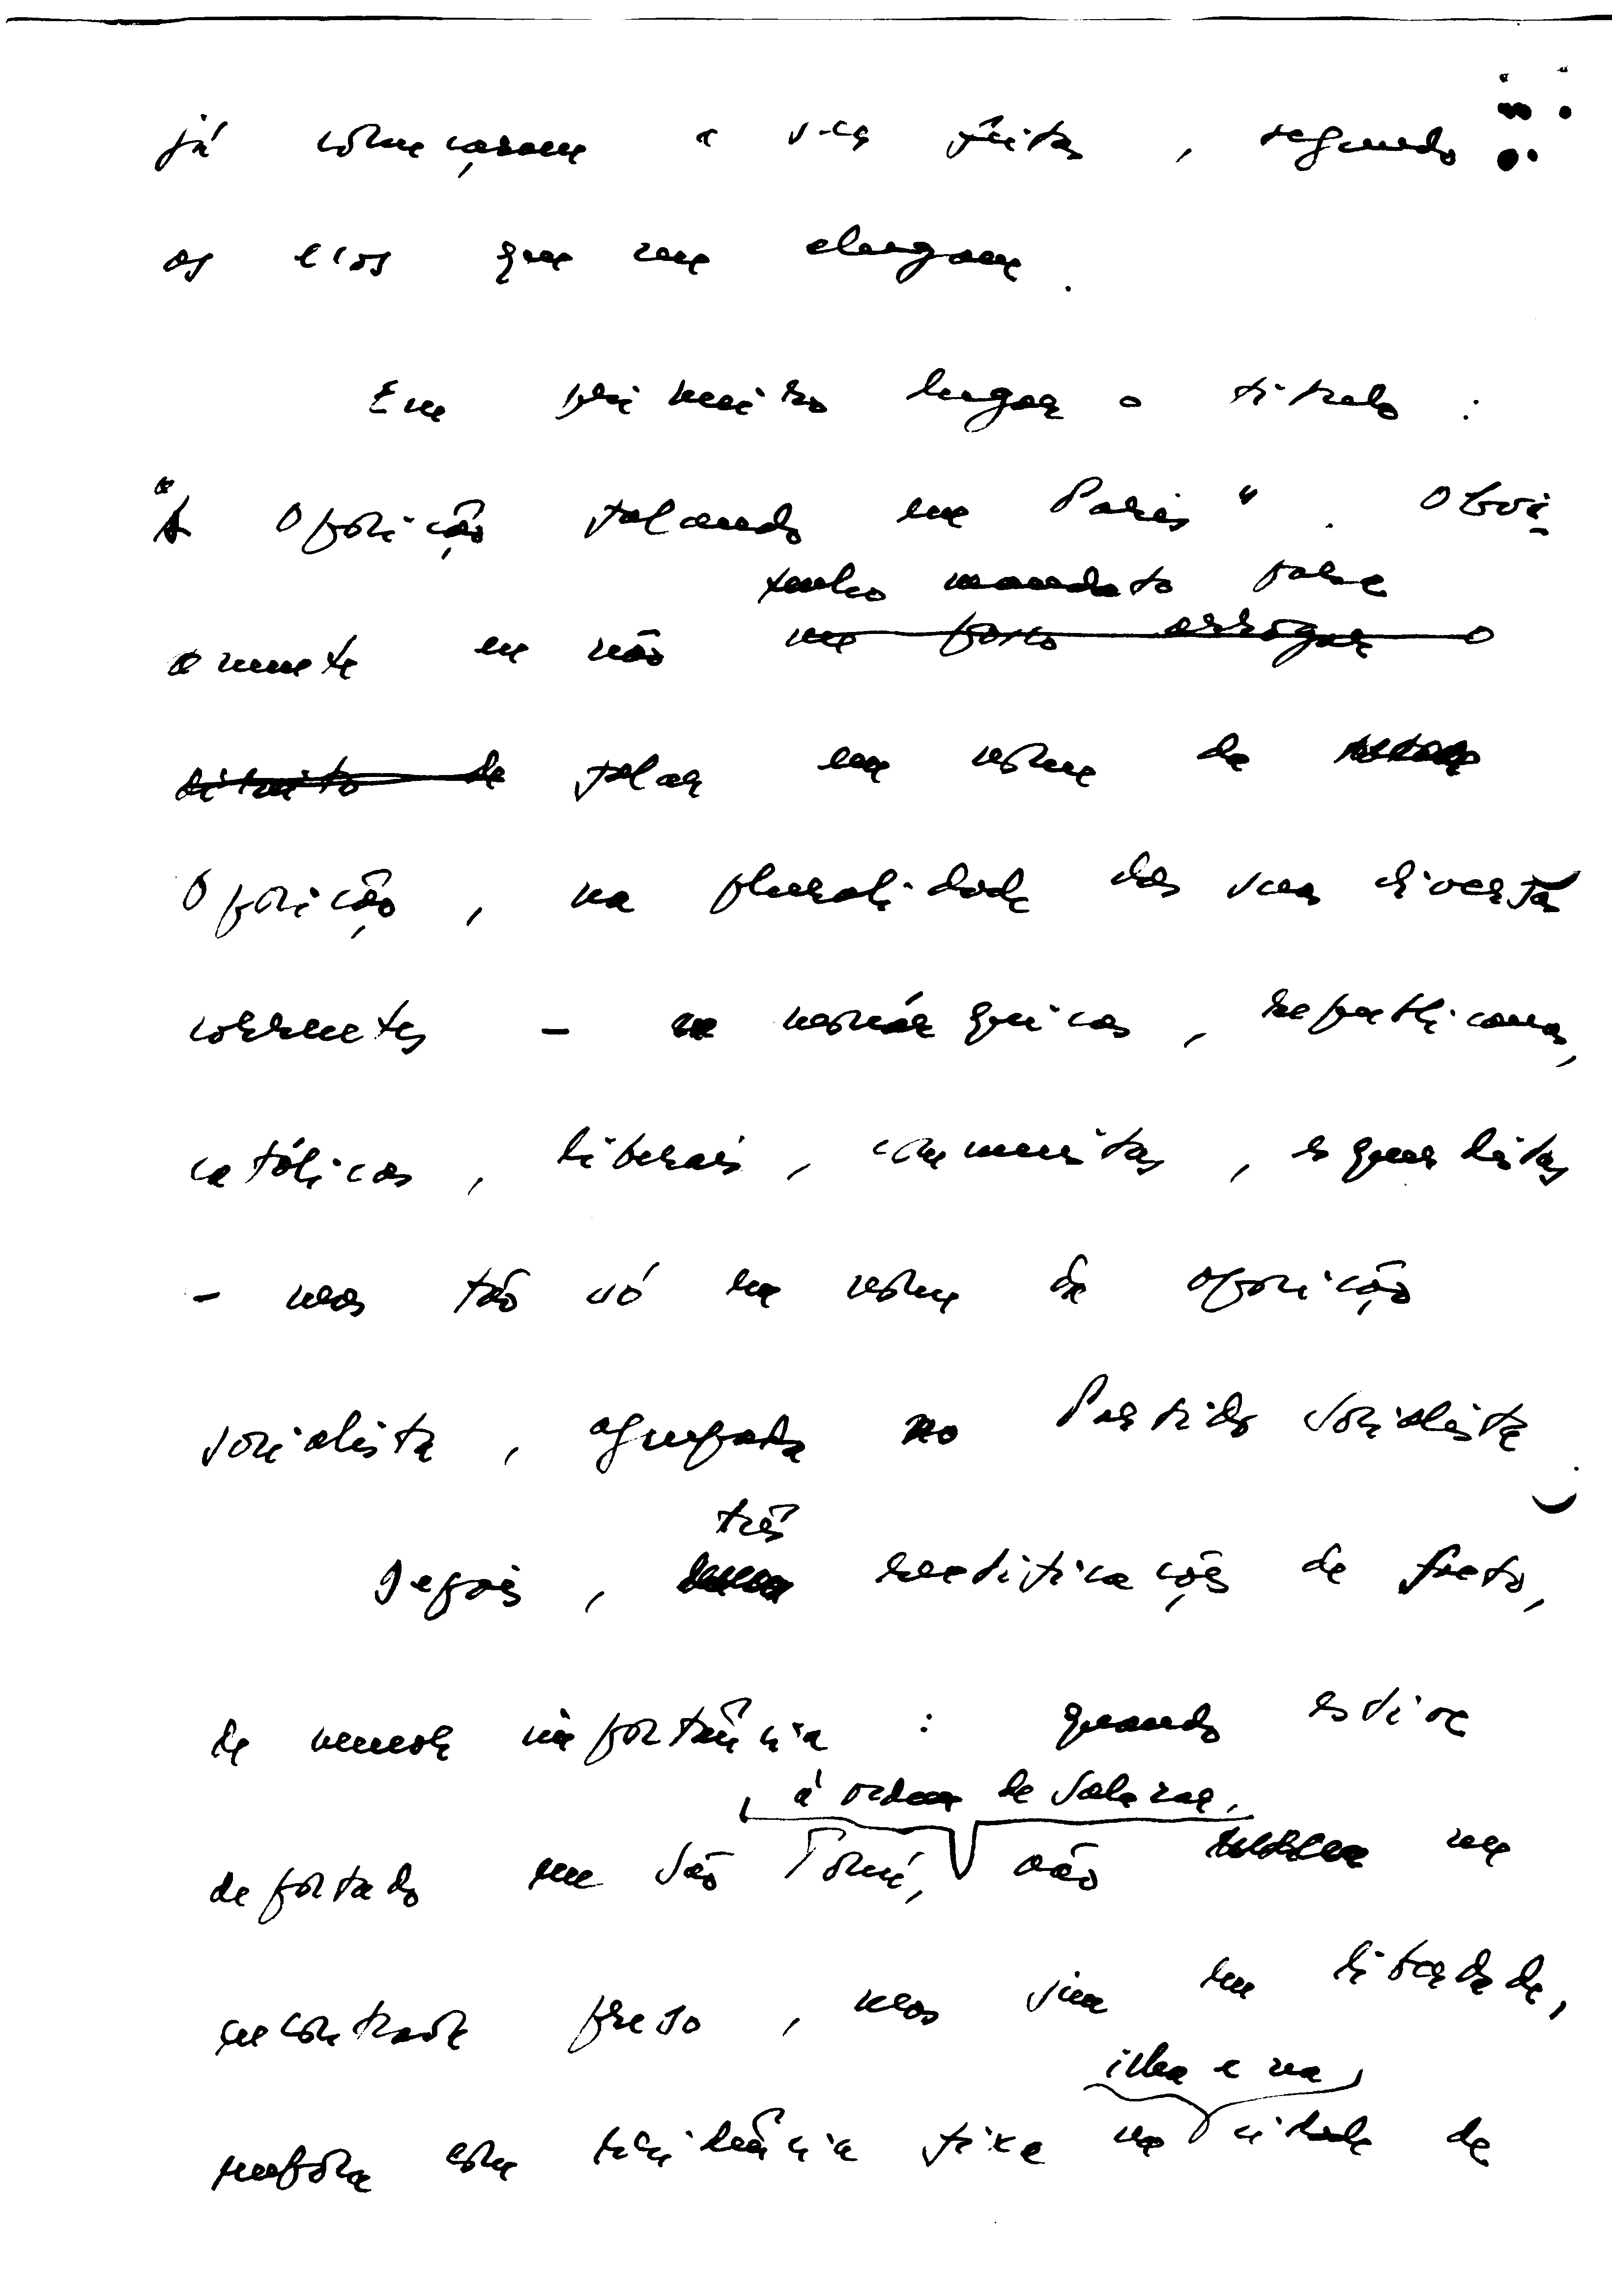 já começaram a ser feitas, segundo
os ecos que me chegam.
Em primeiro lugar o título:
"A Oposição falando em Paris". Obvi-
tenho mandato para
amente eu não me posso arrogar o
direito de falar em nome da
Oposição, na pluralidade das suas diversas
correntes - monárquicos, republicanos,
católicos, liberais, comunistas, esquerdistas
- mas tão só em nome da oposição
socialista, agrupada no Partido Socialista
três
Depois, rectificações de facto,
de menor importância: quando estive
à ordem de Salazar,
deportado em São Tomé, não me
encontrava preso, mas sim em liberdade,
embora com residência fixa na cidade de
ilha e na